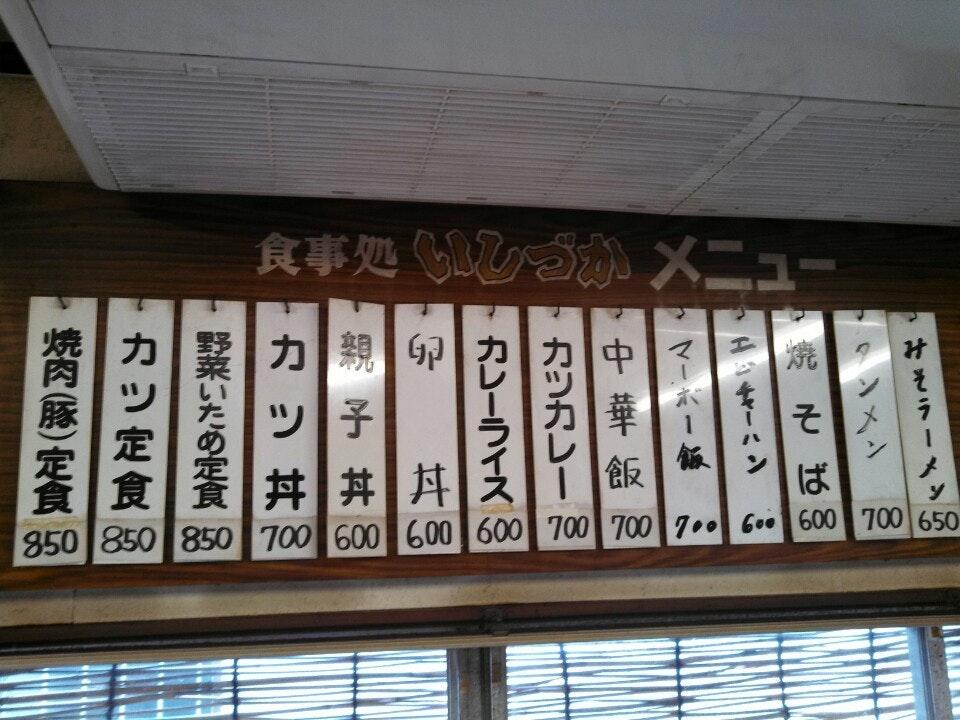 食事処 いしづか メニュー
焼肉(豚)定食
850
カツ定食
850
野菜いため定食
850
カツ丼
700
親子丼
600
卵丼
600
カレーライス
600
カツカレー
700
中華飯
700
マーボー飯
700
エビチャーハン
600
焼そば
600
タンメン
700
みそラーメン
650